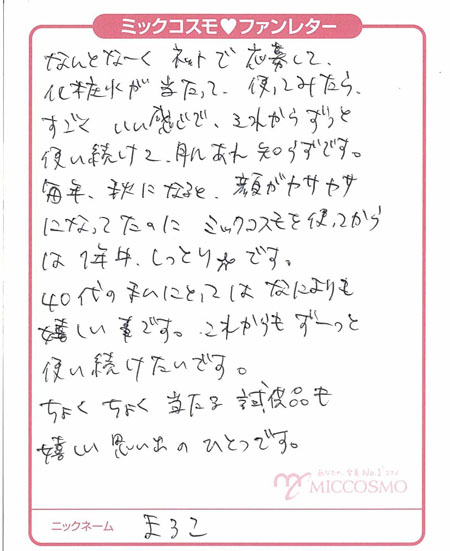 ミックコスモ♥ファンレター
なんとな〜く ネットで 応募して、
化粧水が 当たって、使ってみたら、
すごく いい感じで、それからずっと
使い続けて、肌あれ 知らずです。
毎年、秋になると、顔がカサカサ
になってたのに ミックコスモを使ってから
は 1年中、しっとり☆です。
40代の私にとっては なによりも
嬉しい事です。これからも ずーっと
使い続けたいです。
ちょくちょく 当たる 試供品も
嬉しい思い出の ひとつです。
あなたの、全美No.1コスメ
MICCOSMO
ニックネーム まろこ